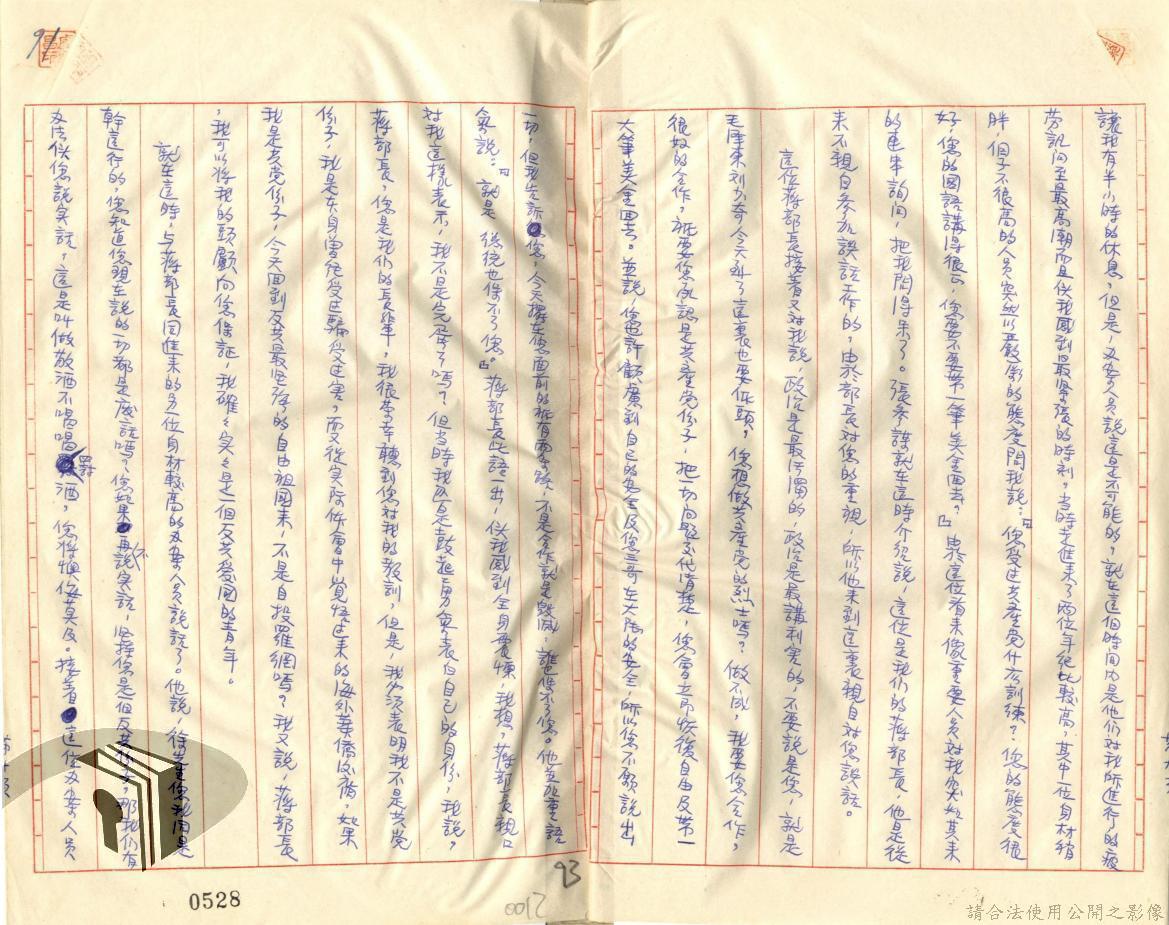 讓我有半小時的休息，但是，辦案人員說這是不可能的，就在這個時間內是他們對我所進行的疲
勞訊問至最高潮而且使我感到最緊張的時刻，當時走進來了兩位年紀比較高，其中一位身材稍
胖，個子不很高的人員突然以嚴厲的態度問我說：「你受过共產党什么訓練？你的態度很
好，您的國語講得很，您要不要帶一筆美金回去？」由於這位看來像重要人員對我突如其來
的連串詢问，把我問得呆了。張參謀就在這時介紹說，這位是我们的蔣部長，他是從
來不親自参加談話工作的，由於部長對您的重視，所以他来到這裏親自对您談話。
這位蔣部長接着又对我說，政治是最污濁的，政治是最講利害的，不要說是您，就是
毛澤東刘少奇今天到了這裏也要低頭，您想做共產党的烈士嗎？做不成，我要您合作，
很好的合作，祇要您承認是共產党份子，把一切问題交代清楚，您會立即恢復自由及帶一
大筆美金回去。並說，您也許顧慮到自己的安全及您三哥在大陸的安全，所以您不願說出
一切，但我告訴您，今天擺在您面前的祇有兩條路，不是合作就是毀滅，誰也保不了您。他並加重語
氣說：「就是 總統也保不了您。」蔣部長此語一出，使我感到全身震慄，我想，蔣部長親口
对我這樣表示，我不是完蛋了嗎？但当時我还是鼓起勇氣表白自己的身份，我說，
蔣部長，您是我们的長輩，我很榮幸聽到您对我的教訓，但是，我必須表明我不是共党
份子，我是本身曾經受过騙受过害，而又從实际体會中覺悟过来的海外華僑份子，如果
我是共党份子，今天回到反共最堅強的自由祖國来，不是自投羅網嗎？我又說，蔣部長
，我可以將我的頭顱向您保証，我確確实实是一個反共愛國的青年。
就在這時，与蔣部長同進来的另位身材較高的辦案人員說話了。他說，徐先生您我同是
幹這行的，您知道您現在說的一切都是廢話嗎？您如果再不說实話，堅持您是個反共份子，那我们有
办法使您說实話，這是叫做敬酒不喝喝罰酒，您將懊悔莫及。接着這位办案人員
91
93
0012
0528
請合法使用公開之影像